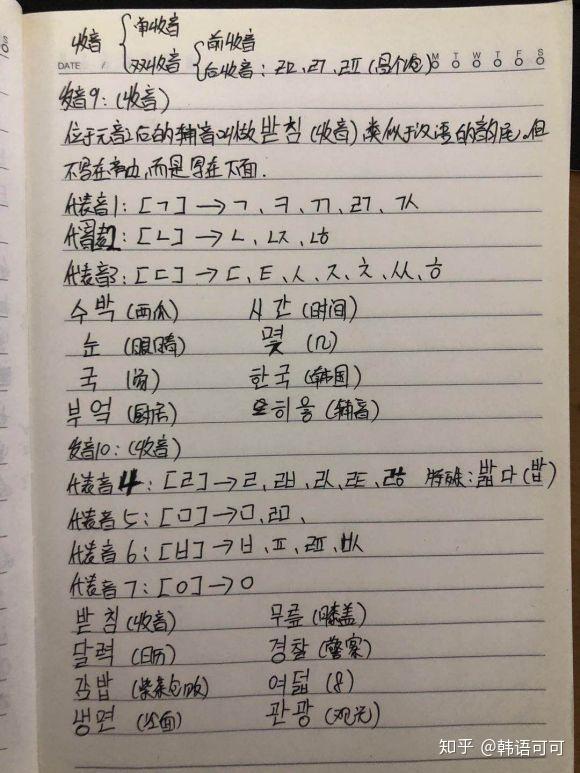 收音 { 单收音
双收音 { 前收音
后收音：ㄻ、ㄺ、ㄿ
DATE / S M T W T F S
发音9：(收音)
位于元音后的辅音叫做 받침 (收音)，类似于汉语的韵尾，但
不写在旁边，而是写在下面.
代表音1：[ㄱ] → ㄱ、ㅋ、ㄲ、ㄺ、ㄳ
代表音2：[ㄴ] → ㄴ、ㄵ、ㄶ
代表音3：[ㄷ] → ㄷ、ㅌ、ㅅ、ㅈ、ㅊ、ㅆ、ㅎ
수박 (西瓜) 시간 (时间)
눈 (眼睛) 몇 (几)
국 (汤) 한국 (韩国)
부엌 (厨房) 히읗 (辅音)
发音10：(收音)
代表音4：[ㄹ] → ㄹ、ㄼ、ㄽ、ㄾ、ㅀ 特殊：밟다 (밥)
代表音5：[ㅁ] → ㅁ、ㄻ、
代表音6：[ㅂ] → ㅂ、ㅍ、ㄿ、ㅄ
代表音7：[ㅇ] → ㅇ
받침 (收音) 무릎 (膝盖)
달력 (日历) 경찰 (警察)
김밥 (紫菜包饭) 여덟 (8)
냉면 (冷面) 관광 (观光)
知乎 @韩语可可